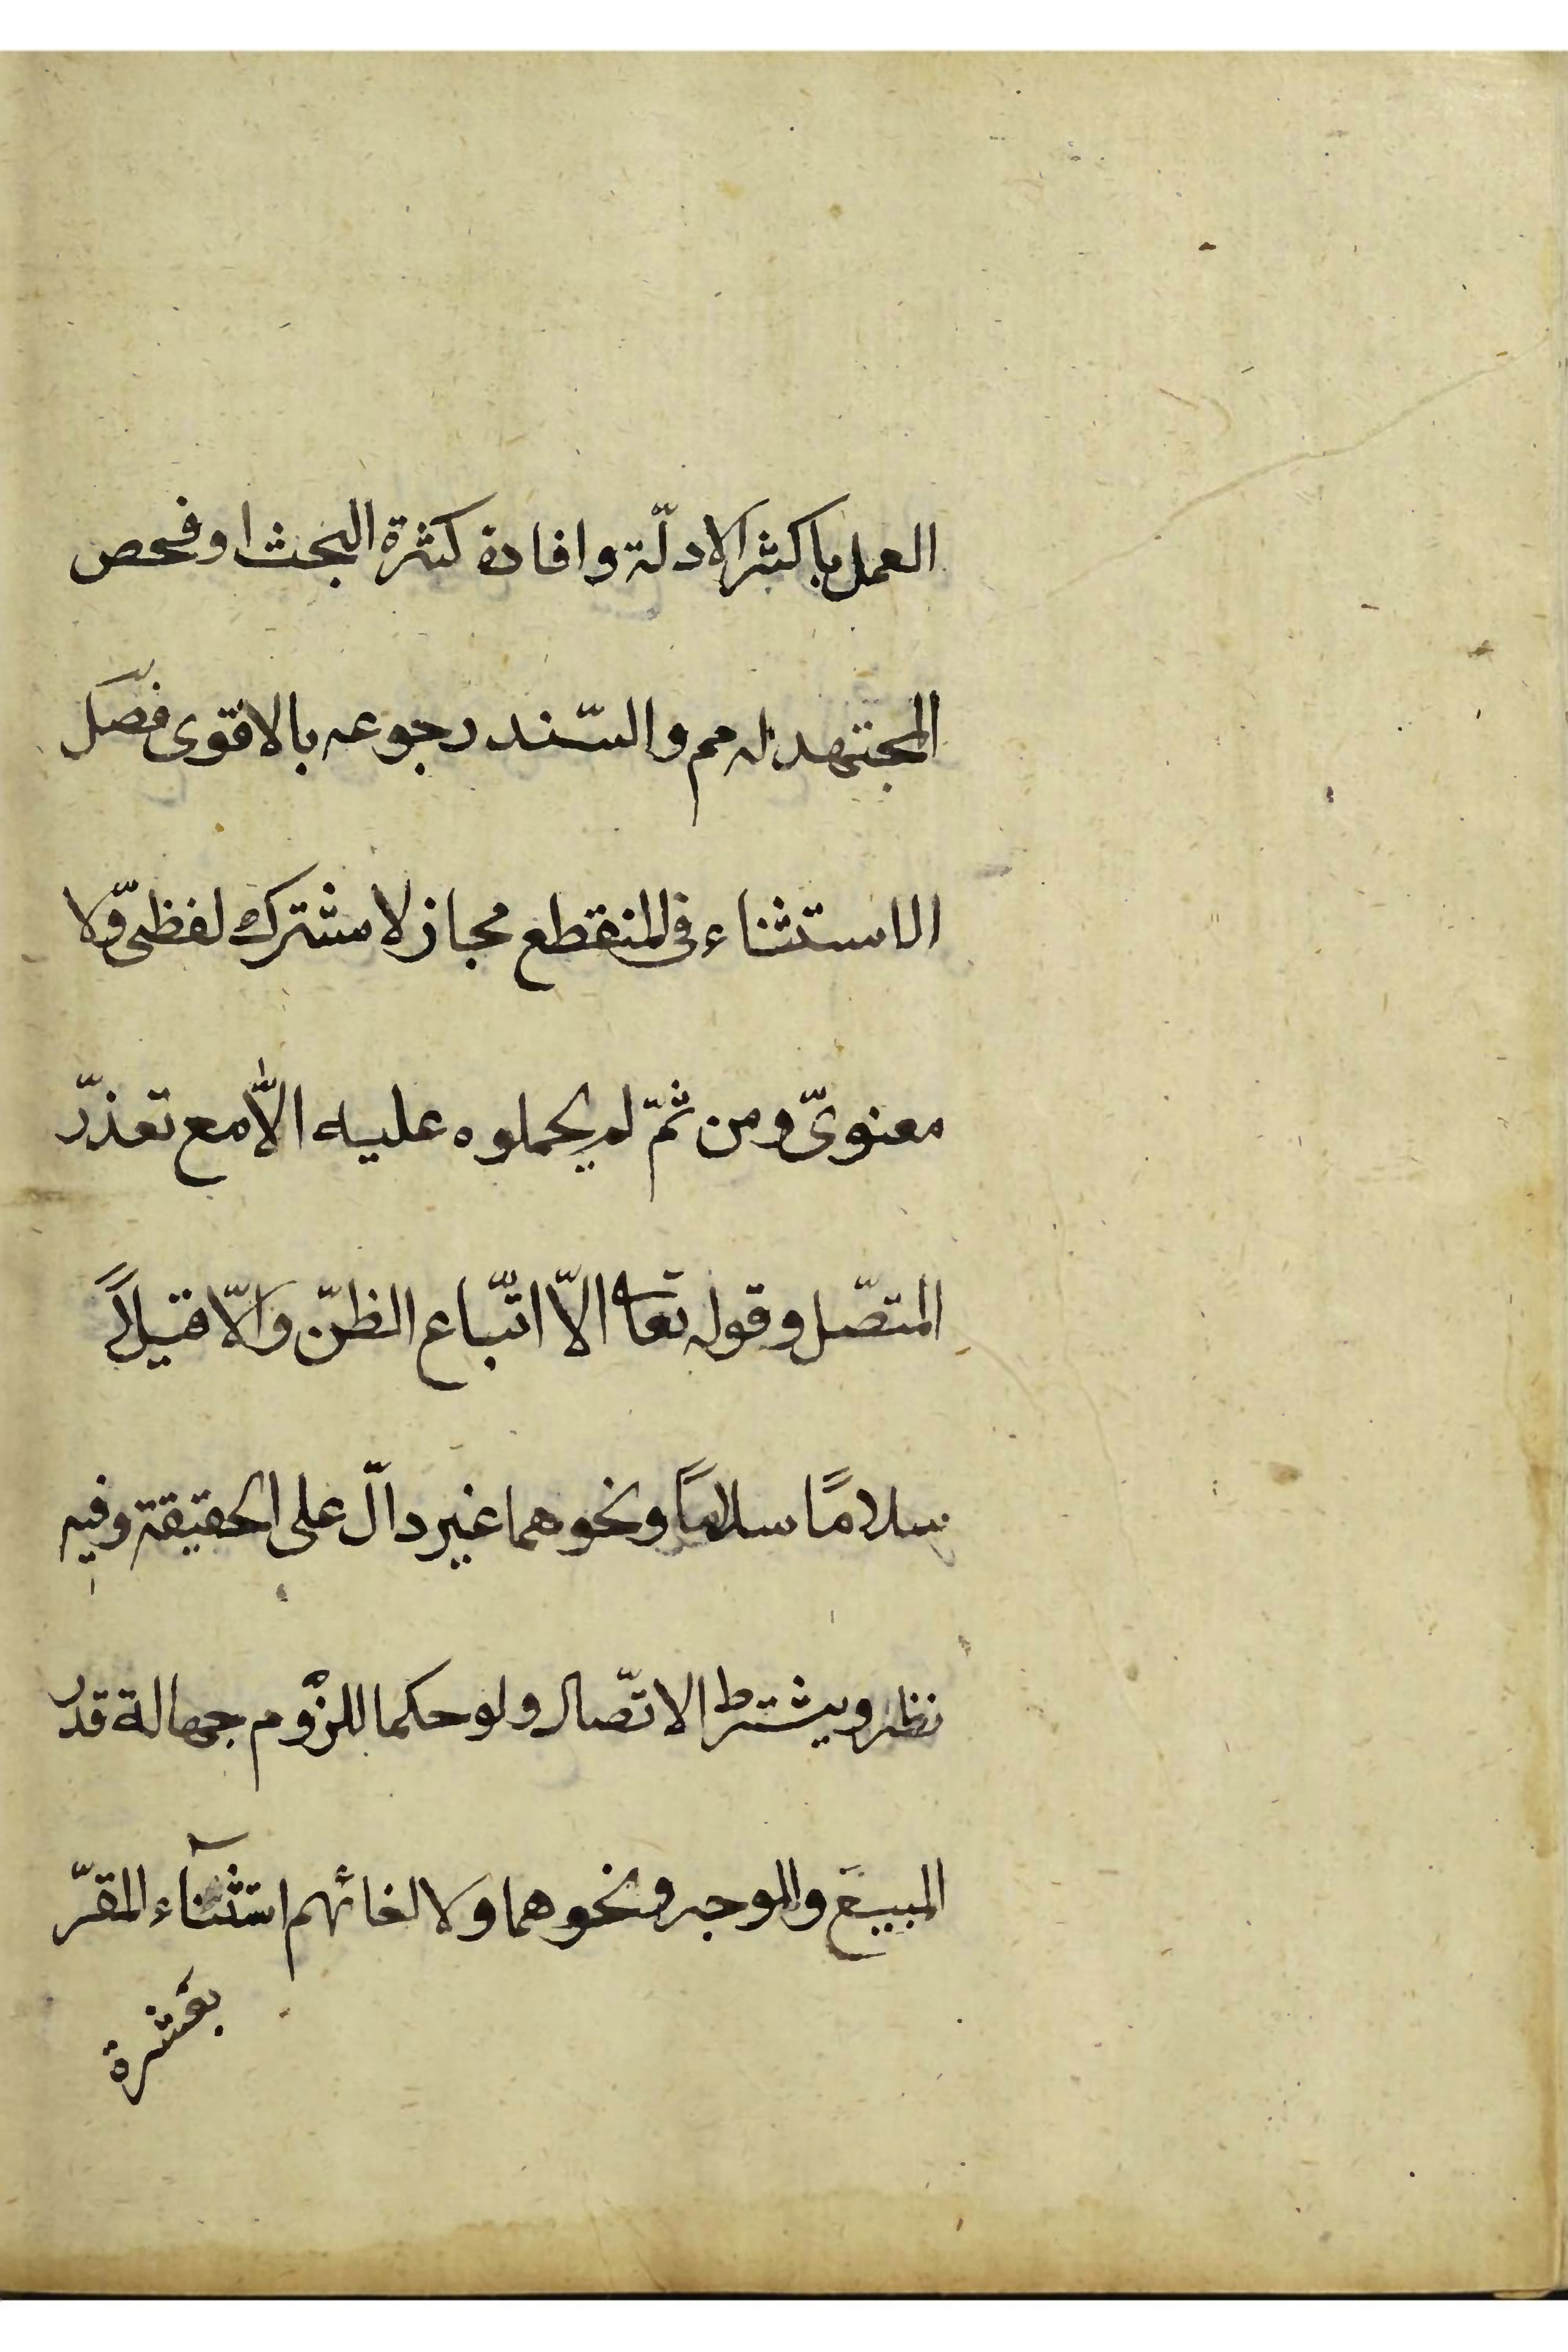 العمل باكثر الادلّة وافادة كثرة البحث او فحص
المجتهد له مم والسّند رجوعه بالاقوى فصل
الاستثناء في المنقطع مجاز لا مشترك لفظىّ ولا
معنوىّ ومن ثمّ لم يحملوه عليه الاّ مع تعذّر
المتصّل وقوله تعا الاّ اتّباع الظنّ والاّ قيلاً
سلامًا سلامًا ونحوهما غير دالّ على الحقيقة وفيه
نظر ويشترط الاتّصال ولو حكما للزوم جهالة قدر
المبيع والموجر ونحوهما ولالغائهم استثناء المقرّ
بعشرة